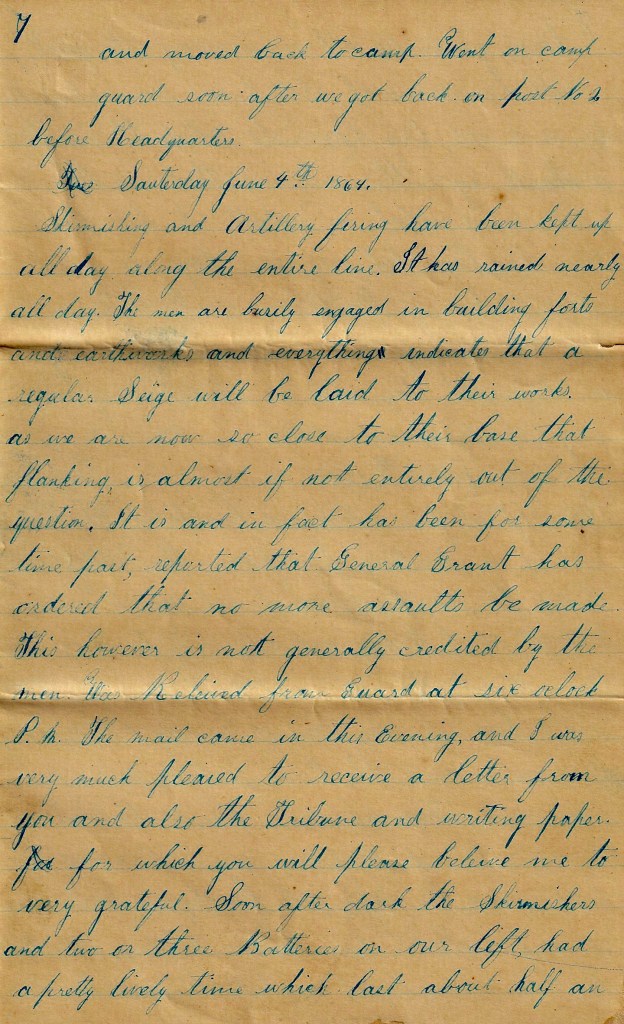 7
and moved back to camp. Went on camp
guard soon after we got back on post No 2
before Headquarters.
Sauterday June 4th. 1864.
Skirmishing and Artillery firing have been kept up
all day along the entire line. It has rained nearly
all day. The men are busily engaged in building forts
and earthworks and everything indicates that a
regular Seige will be laid to their works.
as we are now so close to their base that
flanking, is almost if not entirely out of the
question. It is and in fact has been for some
time past, reported that General Grant has
ordered that no more assaults be made.
This however is not generally credited by the
men. Was Releived from Guard at six oclock
P.M. The mail came in this Evening, and I was
very much pleased to receive a letter from
you and also the Tribune and writing paper.
for for which you will please beleive me to
very grateful. Soon after dark the Skirmishers
and two or three Batteries on our left, had
a pretty lively time which last about half an